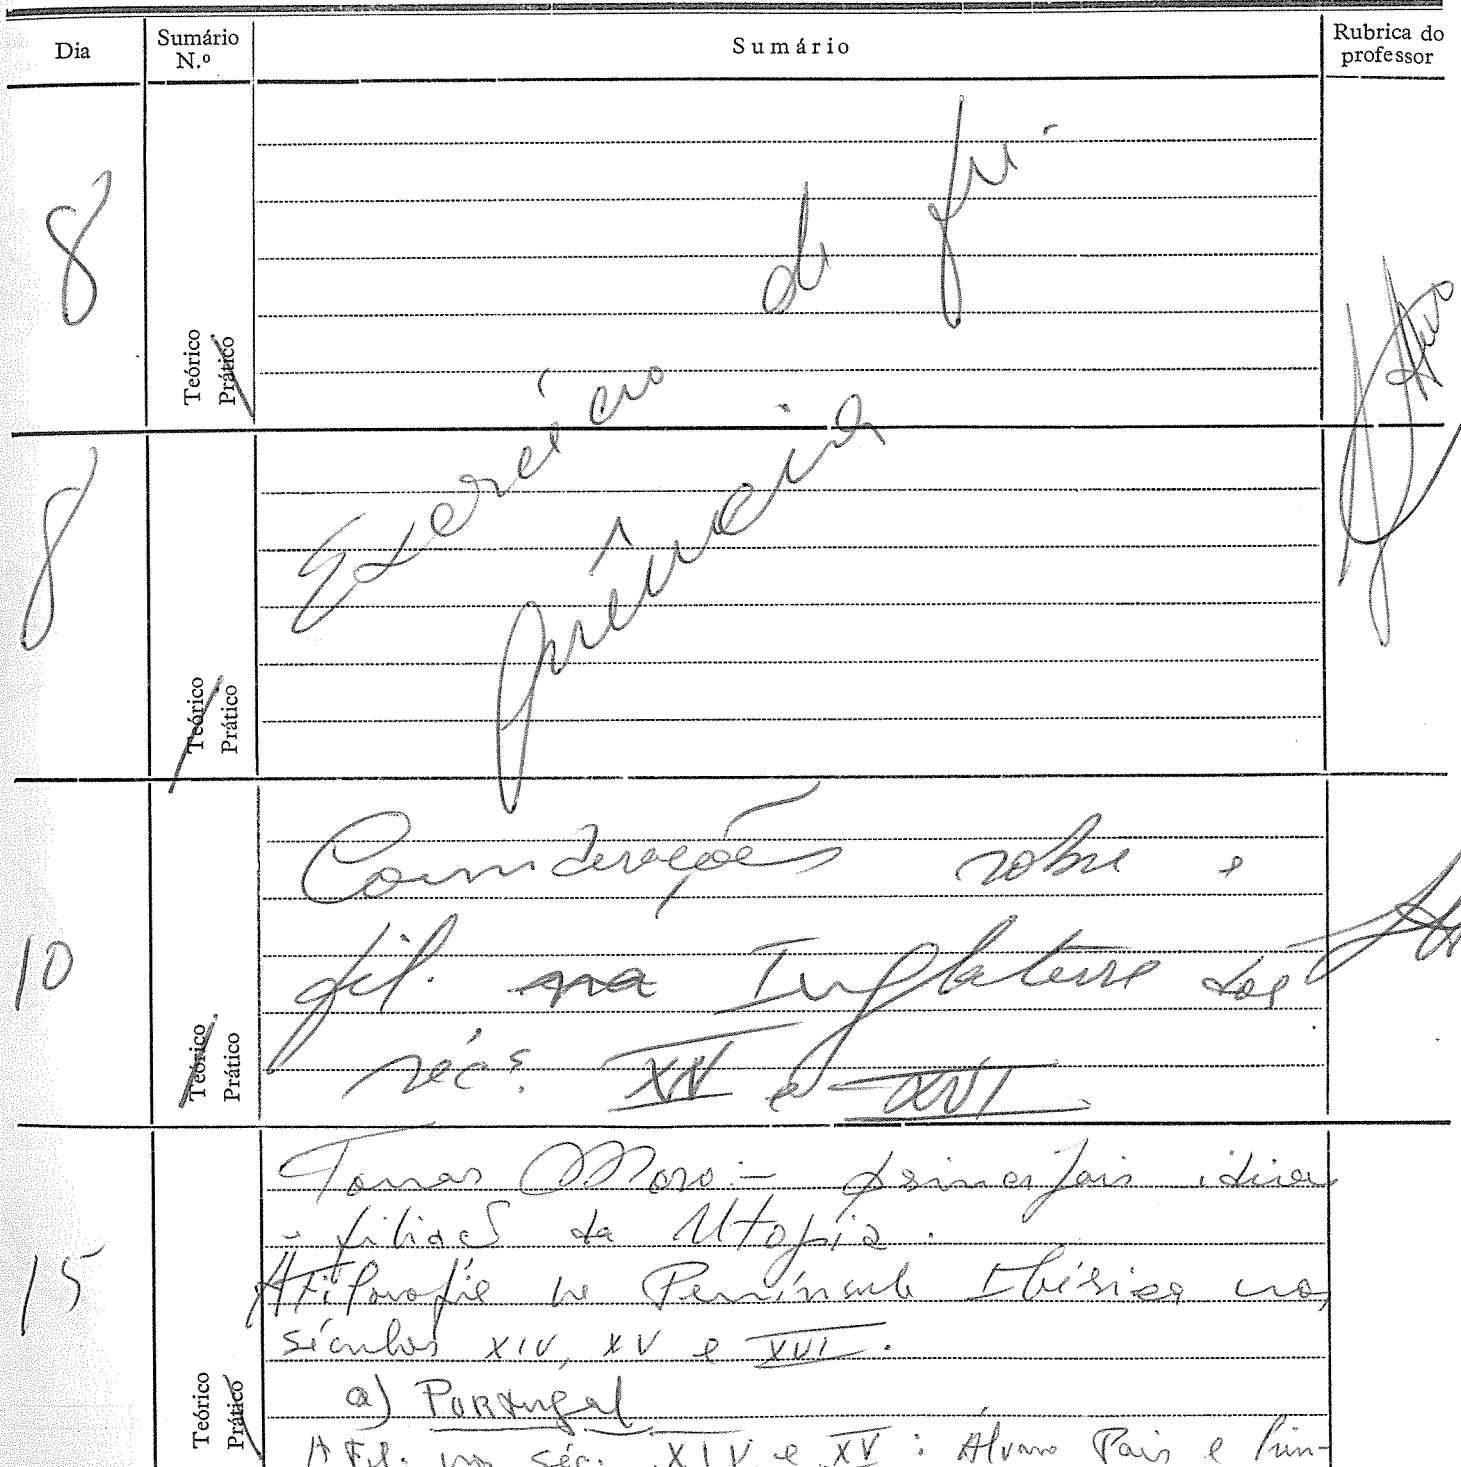 Dia
Sumário
N.º
Sumário
Rubrica do
professor
8
Teórico
Prático
Exercício de fre-
quência
8
Teórico
Prático
10
Considerações sobre a
fil. na Inglaterra dos
séc.s XV e XVI
Teórico
Prático
15
Tomas Moro:- principais ideias
da Utopia.
A Filosofia na Península Ibérica nos
séculos XIV, XV e XVI.
a) Portugal
A Fil. nos séc. XIV e XV: Álvaro Pais e
Teórico
Prático